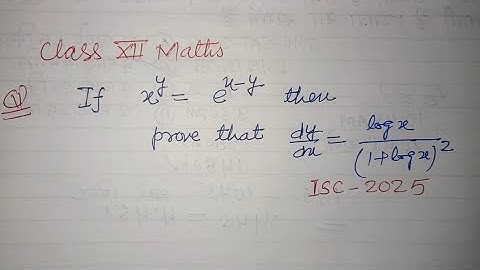 Class XII Maths
Q If x^y = e^(x-y) then
prove that dy/dx = log x/(1+log x)^2
ISC-2025